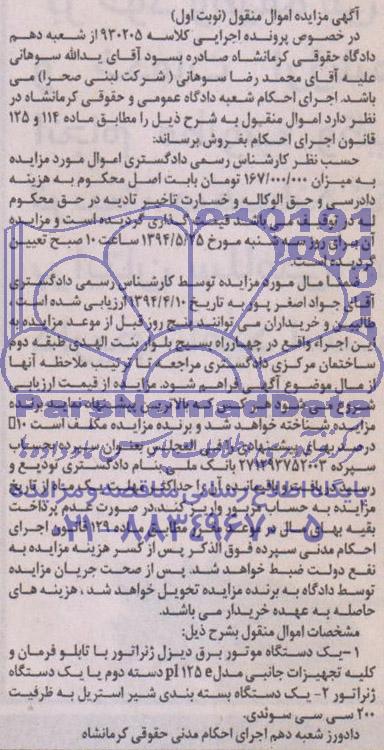 آگهی مزایده اموال منقول (نوبت اول)
در خصوص پرونده اجرایی کلاسه ۹۳۰۲۰۵ از شعبه دهم
دادگاه حقوقی کرمانشاه صادره بسود آقای یدالله سوهانی
علیه آقای محمد رضا سوهانی ( شرکت لبنی صحرا) می
باشد. اجرای احکام شعبه دادگاه عمومی و حقوقی کرمانشاه در
نظر دارد اموال منقول به شرح ذیل را مطابق ماده ۱۱۴ و ۱۲۵
قانون اجرای احکام بفروش برساند:
حسب نظر کارشناس رسمی دادگستری اموال مورد مزایده
به میزان ۱۶۷/۰۰۰/۰۰۰ تومان بابت اصل محکوم به هزینه
دادرسی و حق الوکاله و خسارت تاخیر تادیه در حق محکوم
له در توقیف می باشد قیمت گذاری گردیده است و مزایده
آن برای روز سه شنبه مورخ ۱۳۹۴/۵/۲۵ ساعت ۱۰ صبح تعیین
گردیده است.
ضمنا مال مورد مزایده توسط کارشناس رسمی دادگستری
آقای جواد اصغر پور به تاریخ ۱۳۹۴/۴/۱۰ ارزیابی شده است ،
طالبین و خریداران می توانند پنج روز قبل از موعد مزایده به
این اجراء واقع در چهارراه بسیج بلوار بنت الهدی طبقه دوم
ساختمان مرکزی دادگستری مراجعه تا ترتیب ملاحظه آنها
از مال موضوع آگهی فراهم شود. مزایده از قیمت ارزیابی
شروع می شود هر کس که بالاترین پیشنهاد نماید برنده
مزایده شناخته خواهد شد و برنده مزایده مکلف است ۱۰
درصد بهای پیشنهادی را فی المجلس بعنوان سپرده بحساب
سپرده ۲۷۱۲۹۲۷۵۲۰۰۳ بانک ملی بنام دادگستری تودیع و
رسید دریافت و باقیمانده آن را حداکثر ظرف مهلت یک ماه از تاریخ
مزایده به حساب مزبور واریز کنید. در صورت عدم پرداخت
بقیه بهای مال در موعد مقرر مطابق ماده ۱۲۹ قانون اجرای
احکام مدنی سپرده فوق الذکر پس از کسر هزینه مزایده به
نفع دولت ضبط خواهد شد. پس از صحت جریان مزایده
توسط دادگاه به برنده مزایده تحویل خواهد شد ، هزینه های
حاصله به عهده خریدار می باشد.
مشخصات اموال منقول بشرح ذیل:
۱-یک دستگاه موتور برق دیزل ژنراتور با تابلو فرمان و
کلیه تجهیزات جانبی مدل pl ۱۲۵ e دسته دوم یا یک دستگاه
ژنراتور ۲- یک دستگاه بسته بندی شیر استریل به ظرفیت
۲۰۰ سی سی سوئدی.
دادورز شعبه دهم اجرای احکام مدنی حقوقی کرمانشاه
ParsNamadData
پایگاه اطلاع رسانی مناقصه و مزایده
۰۲۱-۸۸۳۴۹۶۷۰-۵